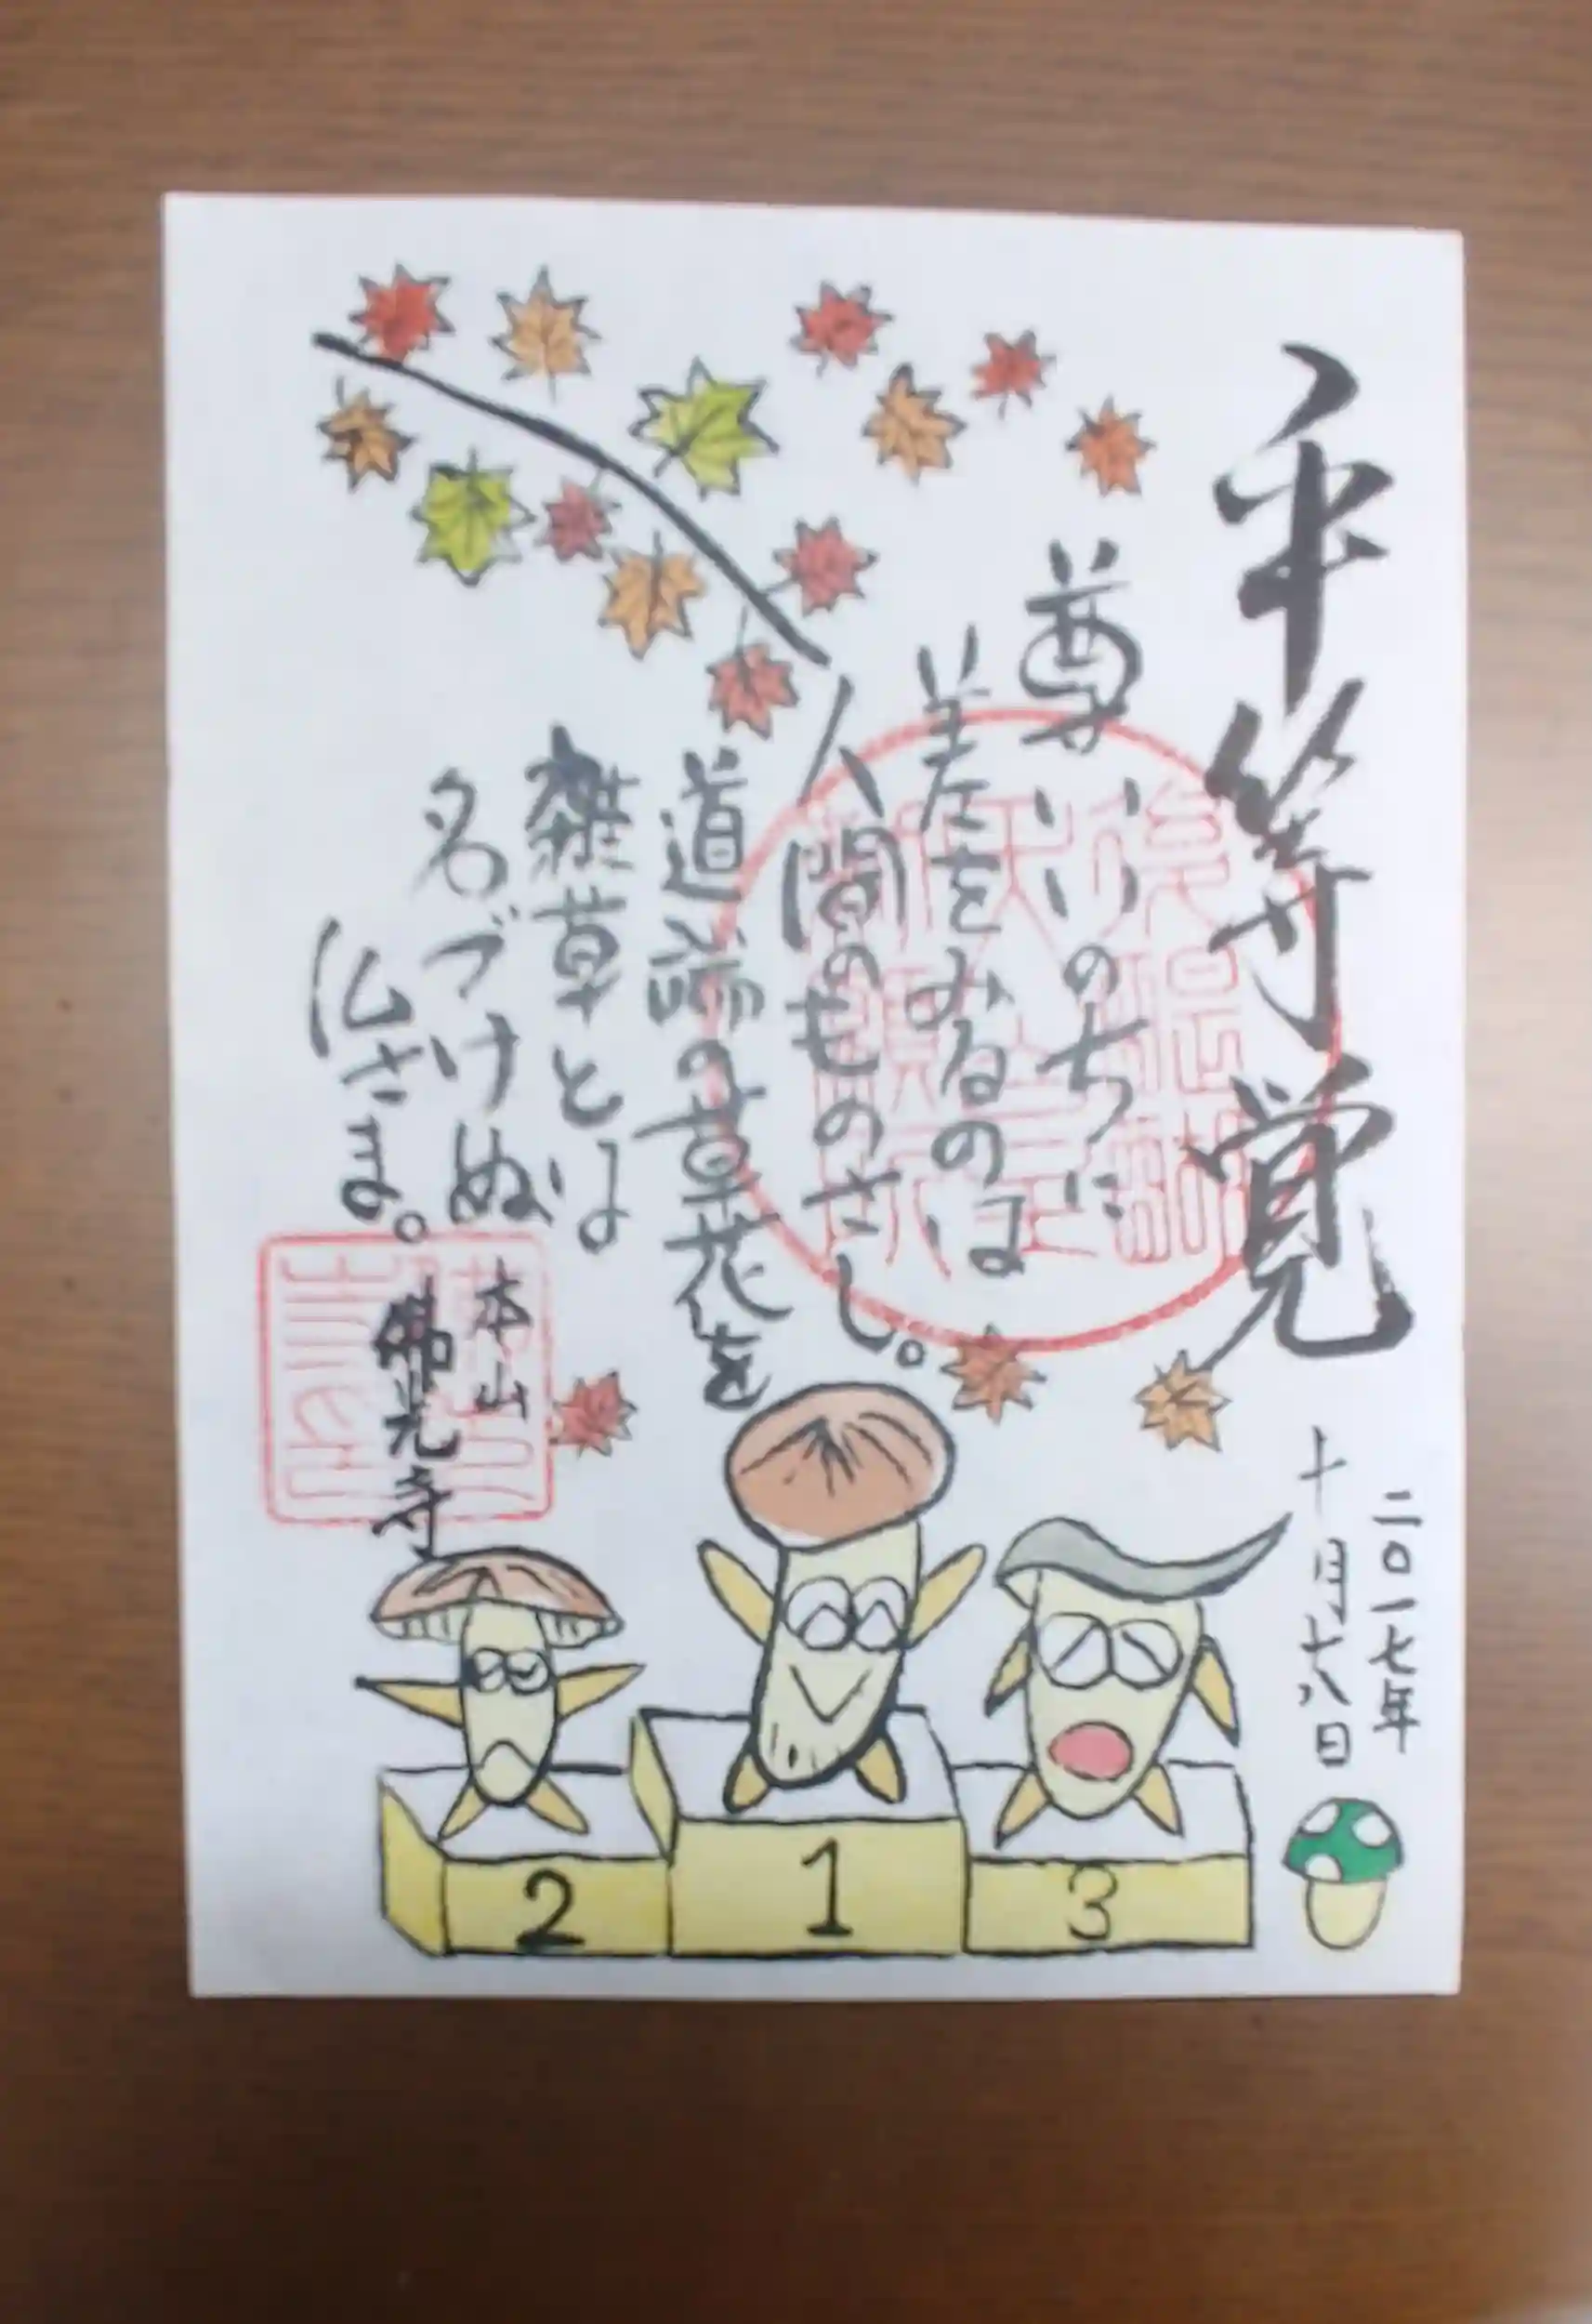 平等覚
尊いいのちに
差をみるのは
人間のものさし。
道端の草花を
雑草とは
名づけぬ
仏さま。
本山
佛光寺
二〇一七年
十月十八日
2
1
3